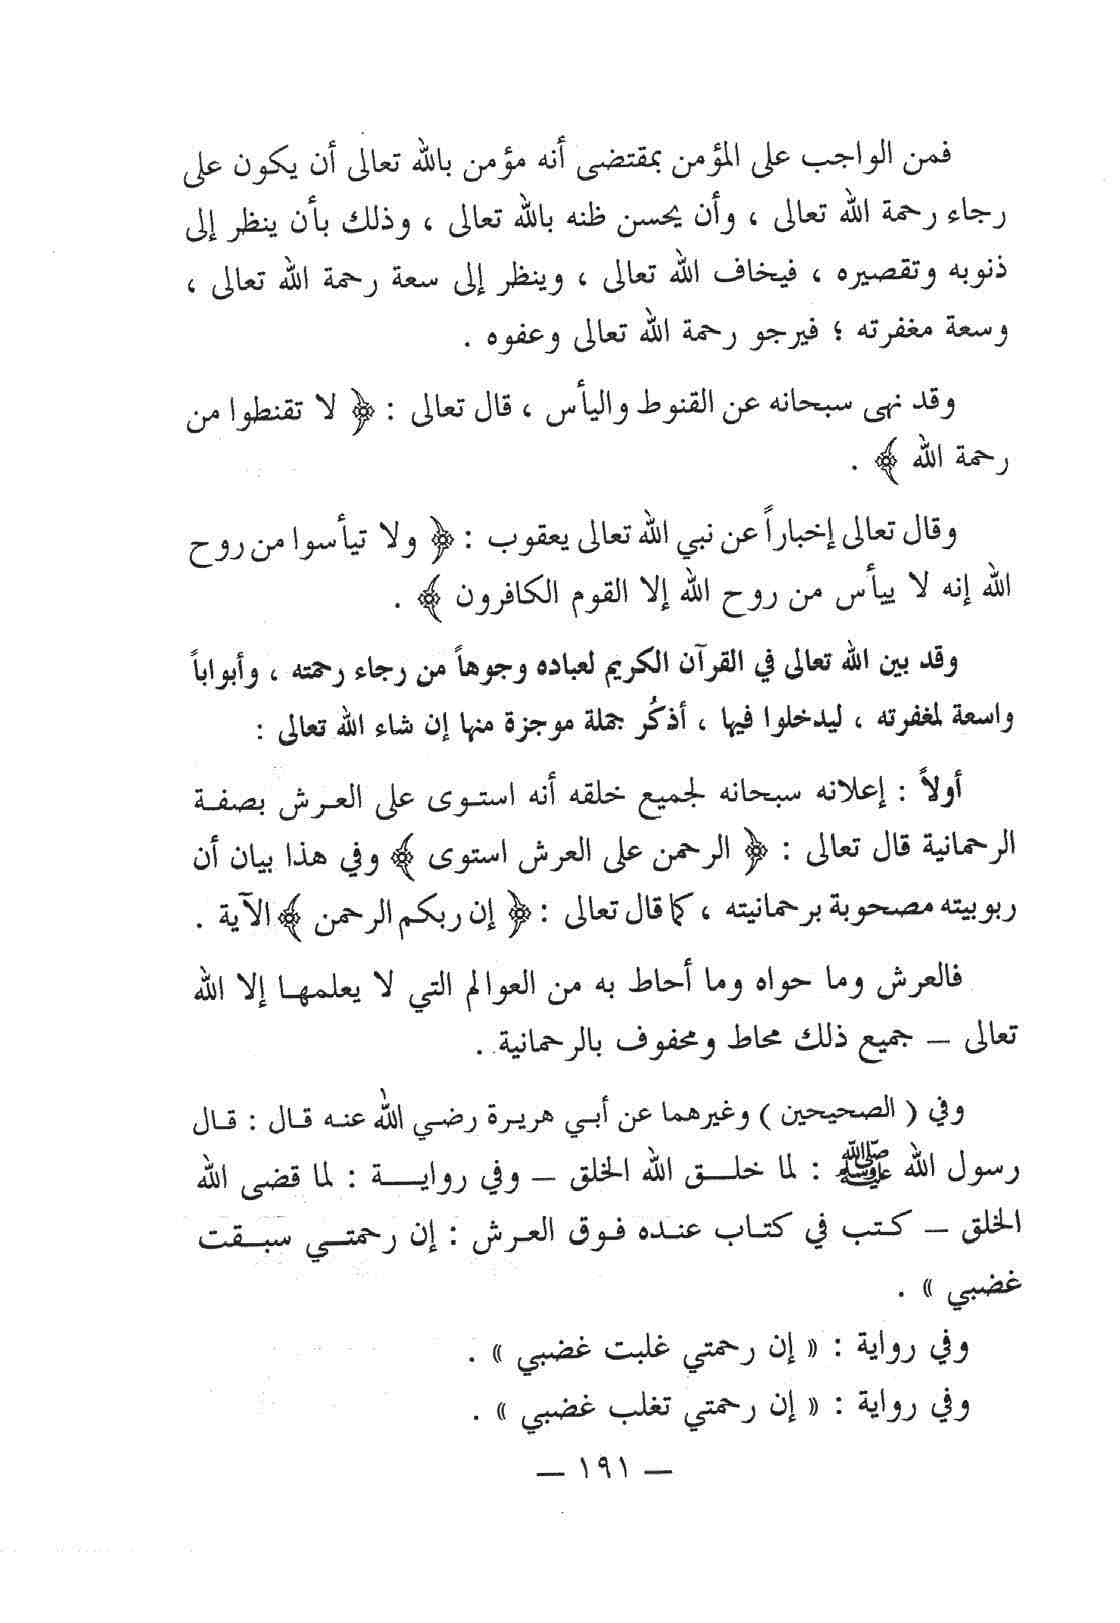 فمن الواجب على المؤمن بمقتضى أنه مؤمن بالله تعالى أن يكون على
رجاء رحمة الله تعالى ، وأن يحسن ظنه بالله تعالى ، وذلك بأن ينظر إلى
ذنوبه وتقصيره ، فيخاف الله تعالى ، وينظر إلى سعة رحمة الله تعالى ،
وسعة مغفرته ؛ فيرجو رحمة الله تعالى وعفوه .
وقد نهى سبحانه عن القنوط واليأس ، قال تعالى : ﴿ لا تقنطوا من
رحمة الله ﴾ .
وقال تعالى إخباراً عن نبي الله تعالى يعقوب : ﴿ ولا تيأسوا من روح
الله إنه لا ييأس من روح الله إلا القوم الكافرون ﴾ .
وقد بين الله تعالى في القرآن الكريم لعباده وجوهاً من رجاء رحمته ، وأبواباً
واسعة لمغفرته ، ليدخلوا فيها ، أذكُر جملة موجزة منها إن شاء الله تعالى :
أولاً : إعلانه سبحانه لجميع خلقه أنه استوى على العرش بصفة
الرحمانية قال تعالى : ﴿ الرحمن على العرش استوى ﴾ وفي هذا بيان أن
ربوبيته مصحوبة برحمانيته ، كما قال تعالى : ﴿ إن ربكم الرحمن ﴾ الآية .
فالعرش وما حواه وما أحاط به من العوالم التي لا يعلمها إلا الله
تعالى – جميع ذلك محاط ومحفوف بالرحمانية .
وفي ( الصحيحين ) وغيرهما عن أبي هريرة رضي الله عنه قال : قال
رسول الله ﷺ : لما خلق الله الخلق – وفي رواية : لما قضى الله
الخلق – كتب في كتاب عنده فوق العرش : إن رحمتي سبقت
غضبي » .
وفي رواية : « إن رحمتي غلبت غضبي » .
وفي رواية : « إن رحمتي تغلب غضبي » .
– ١٩١ –